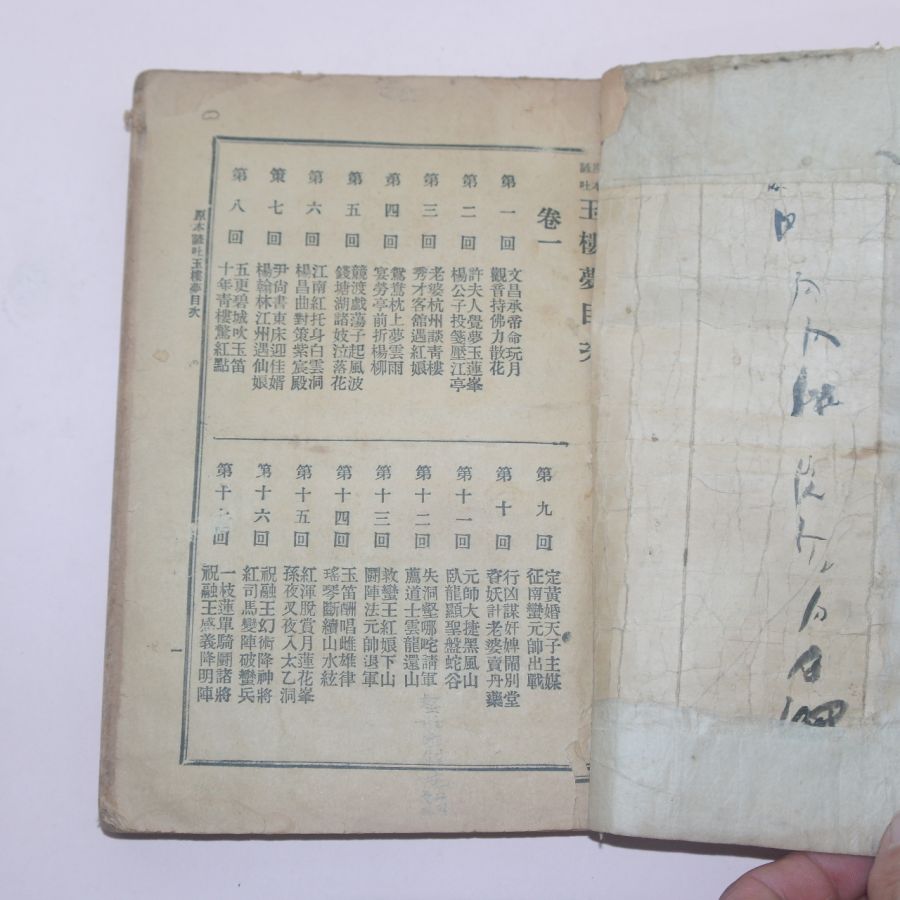 原本諺吐
玉樓夢目次
卷一
第一回 文昌承帝命玩月
觀音持佛力散花
第二回 許夫人覺夢玉蓮峯
楊公子投箋壓江亭
第三回 老婆杭州談靑樓
秀才客館遇紅娘
第四回 鴛鴦枕上夢雲雨
宴勞亭前折楊柳
第五回 競渡戱蕩子起風波
錢塘湖諸妓泣落花
第六回 江南紅托身白雲洞
楊昌曲對策紫宸殿
第七回 尹尙書東床迎佳婿
楊翰林江州遇仙娘
第八回 五更碧城吹玉笛
十年靑樓驚紅點
第九回 定黃婚天子主媒
征南蠻元帥出戰
第十回 行凶謀奸婢鬧別堂
妖計老婆賣丹藥
第十一回 元帥大捷黑風山
臥龍顯聖盤蛇谷
第十二回 失洞壑哪咤請軍
薦道士雲龍還山
第十三回 救蠻王紅娘下山
鬪陣法元帥退軍
第十四回 玉笛酬唱雌雄律
瑤琴斷續山水絃
第十五回 紅渾脫賞月蓮花峯
孫夜叉夜入太乙洞
第十六回 祝融王幻術降神將
紅司馬變陣破蠻兵
第十 回 一枝蓮單騎鬪諸將
祝融王感義降明陣
原本諺吐玉樓夢目次
一